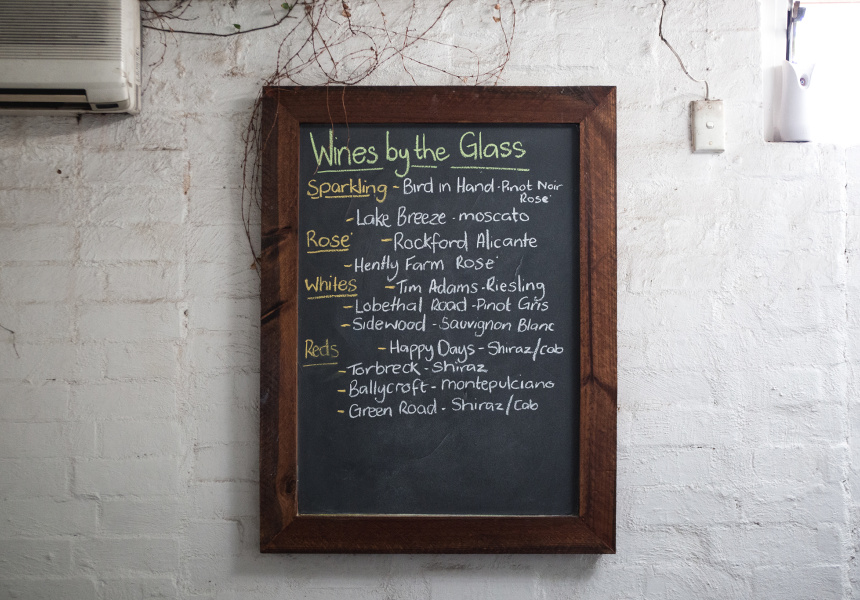 Wines by the Glass
Sparkling - Bird in Hand · Pinot Noir
Rosé
- Lake Breeze · moscato
Rosé - Rockford Alicante
- Hently Farm Rosé
Whites - Tim Adams - Riesling
- Lobethal Road - Pinot Gris
- Sidewood - Sauvignon Blanc
Reds - Happy Days - Shiraz/cab
- Torbreck - Shiraz
- Ballycroft - montepulciano
- Green Road - Shiraz/Cab